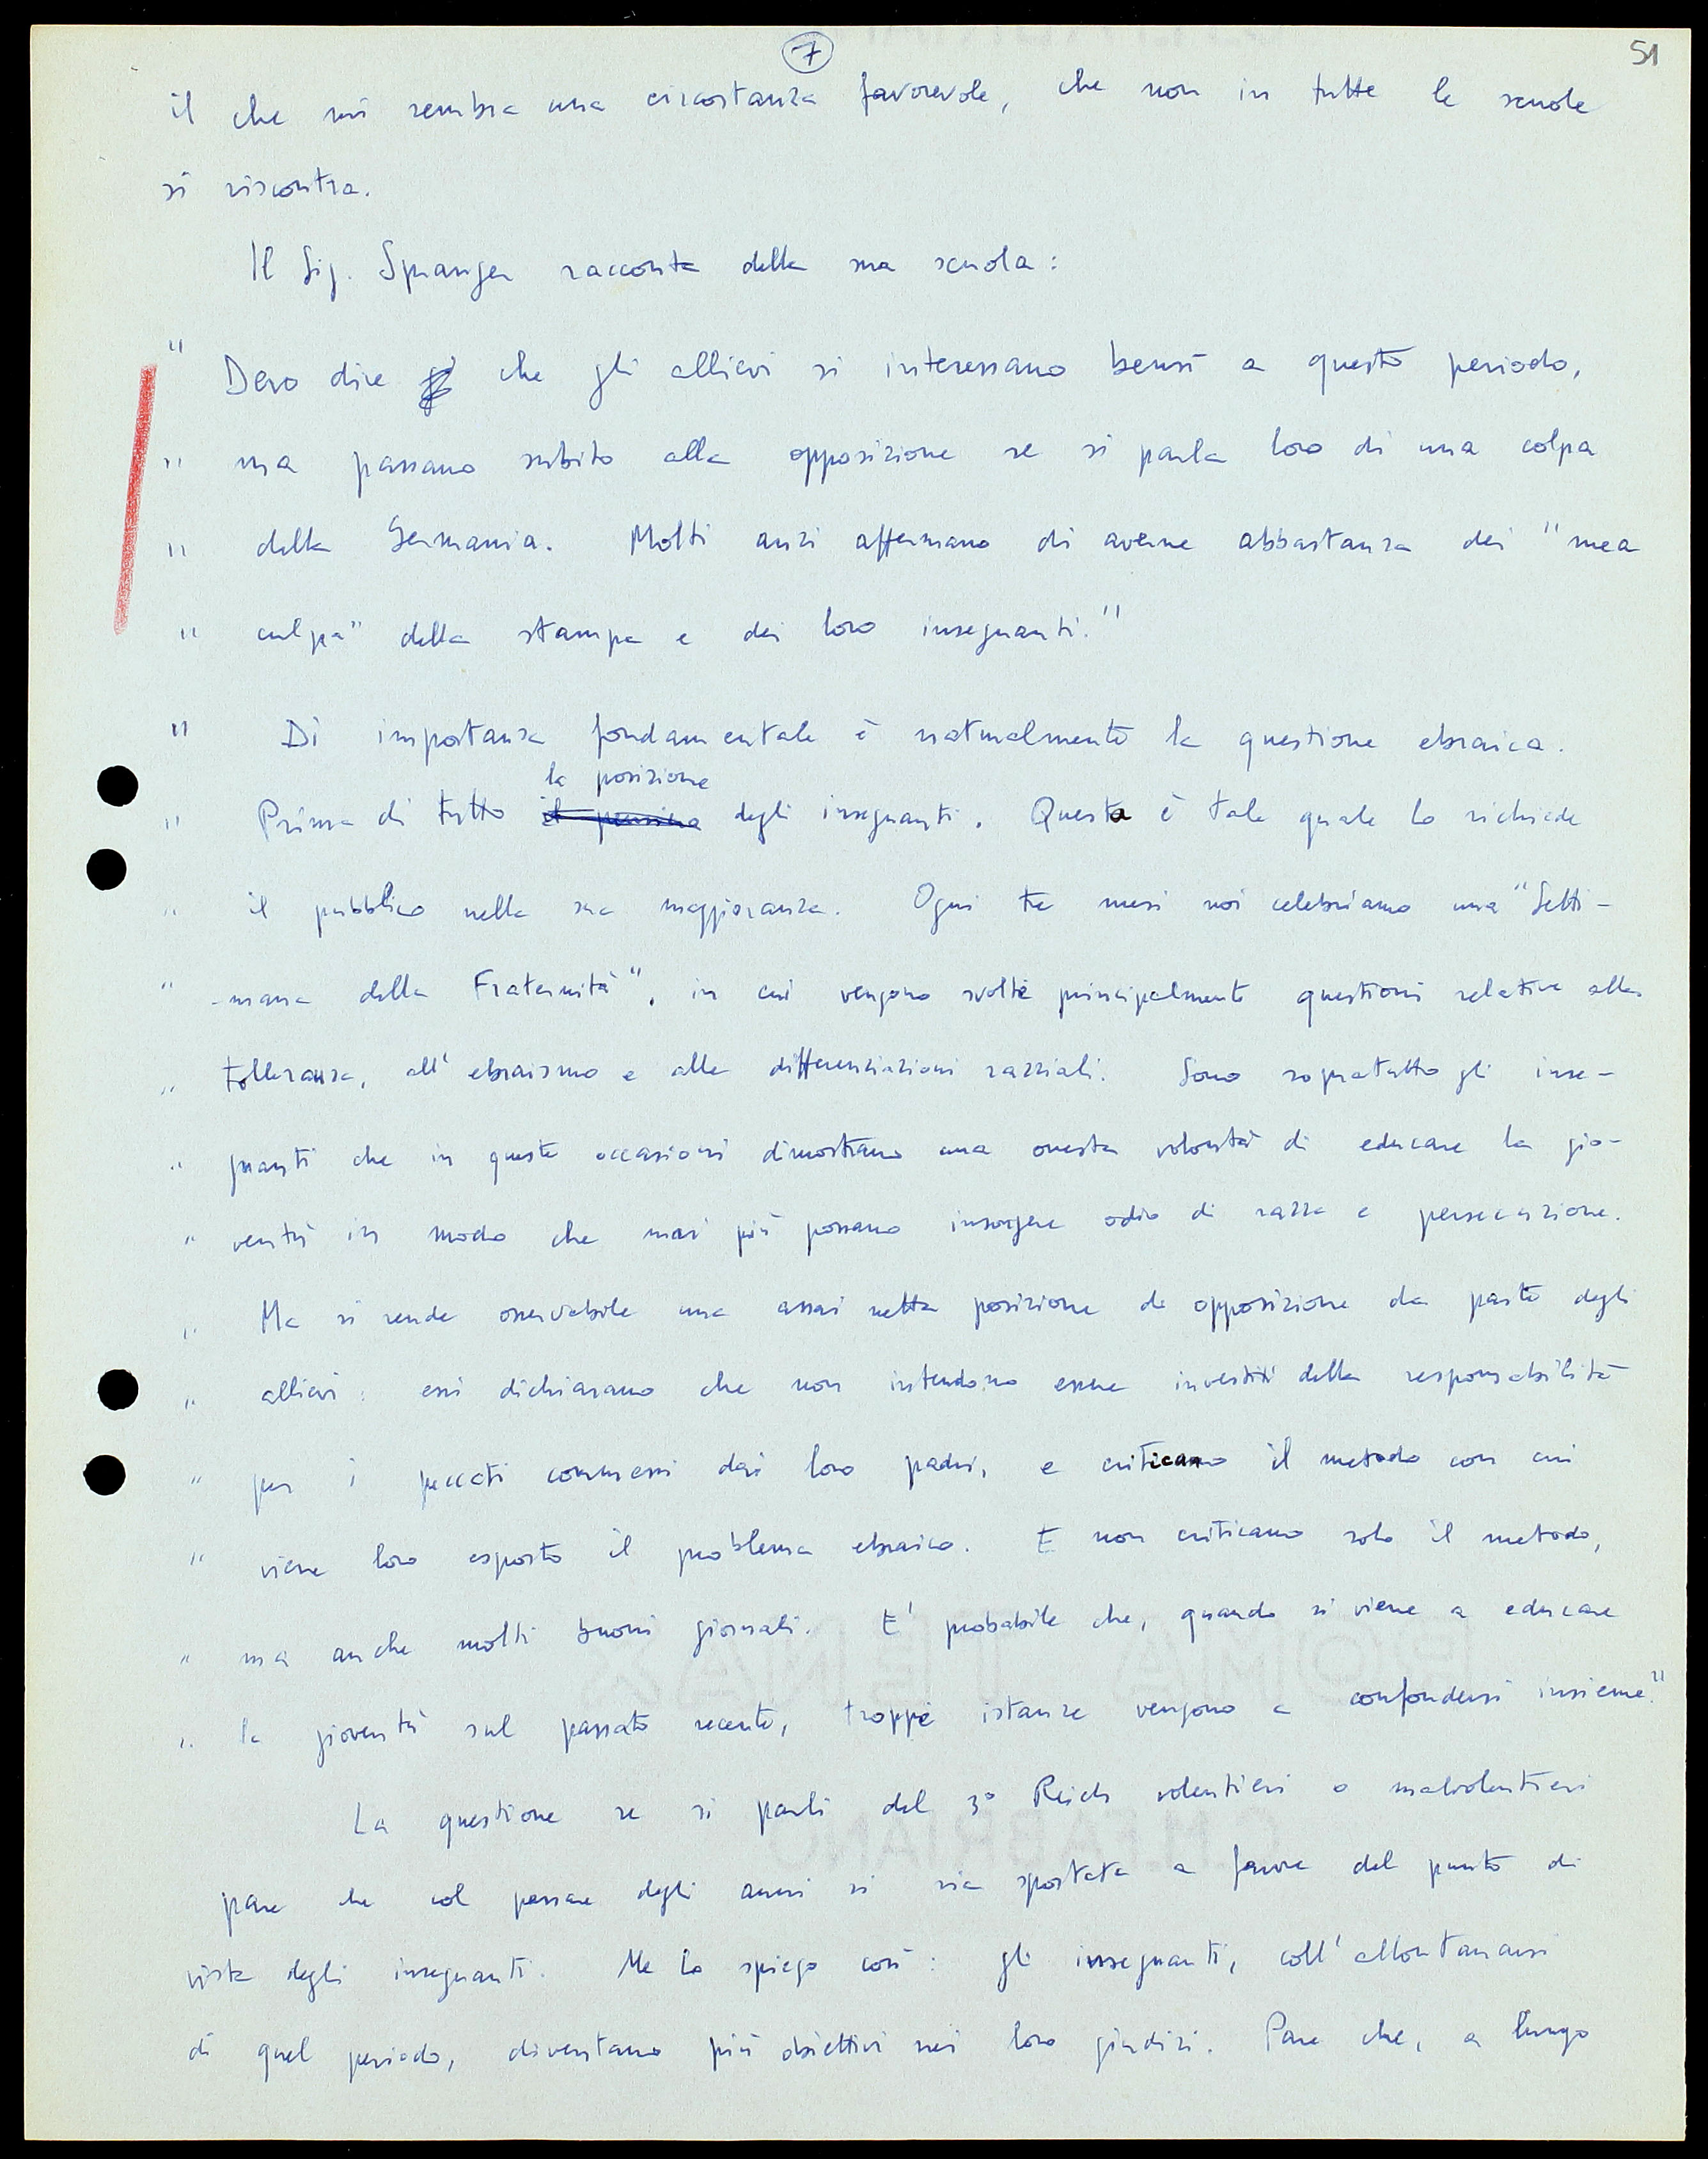 7
51
il che mi sembra una circostanza favorevole, che non in tutte le scuole
si riscontra.
Il Sig. Spranger racconta della sua scuola:
" Devo dire che gli allievi si interessano bensì a questo periodo,
" ma passano subito alla opposizione se si parla loro di una colpa
" della Germania. Molti anzi affermano di averne abbastanza dei "mea
" culpa" della stampa e dei loro insegnanti."
" Di importanza fondamentale è naturalmente la questione ebraica.
la posizione
" Prima di tutto il pensiero degli insegnanti. Questa è tale quale lo richiede
" il pubblico nella sua maggioranza. Ogni tre mesi noi celebriamo una "Setti-
" -mana della Fraternità", in cui vengono svolte principalmente questioni relative alla
" tolleranza, all'ebraismo e alle differenziazioni razziali. Sono sopratutto gli inse-
" gnanti che in queste occasioni dimostrano una onesta volontà di educare la gio-
" ventù in modo che mai più possano insorgere odio di razza e persecuzione.
" Ma si rende osservabile una assai netta posizione di opposizione da parte degli
" allievi: essi dichiarano che non intendono essere investiti della responsabilità
" per i peccati commessi dai loro padri, e criticano il metodo con cui
" viene loro esposto il problema ebraico. E non criticano solo il metodo,
" ma anche molti buoni giornali. E' probabile che, quando si viene a educare
" la gioventù sul passato recente, troppe istanze vengono a confondersi insieme."
La questione se si parli del 3° Reich volentieri o malvolentieri
pare che col passare degli anni si sia spostata a favore del punto di
vista degli insegnanti. Me lo spiego così: gli insegnanti, coll'allontanarsi
di quel periodo, diventano più obiettivi nei loro giudizi. Pare che, a lungo
ROMA
C.M.FABRIANO